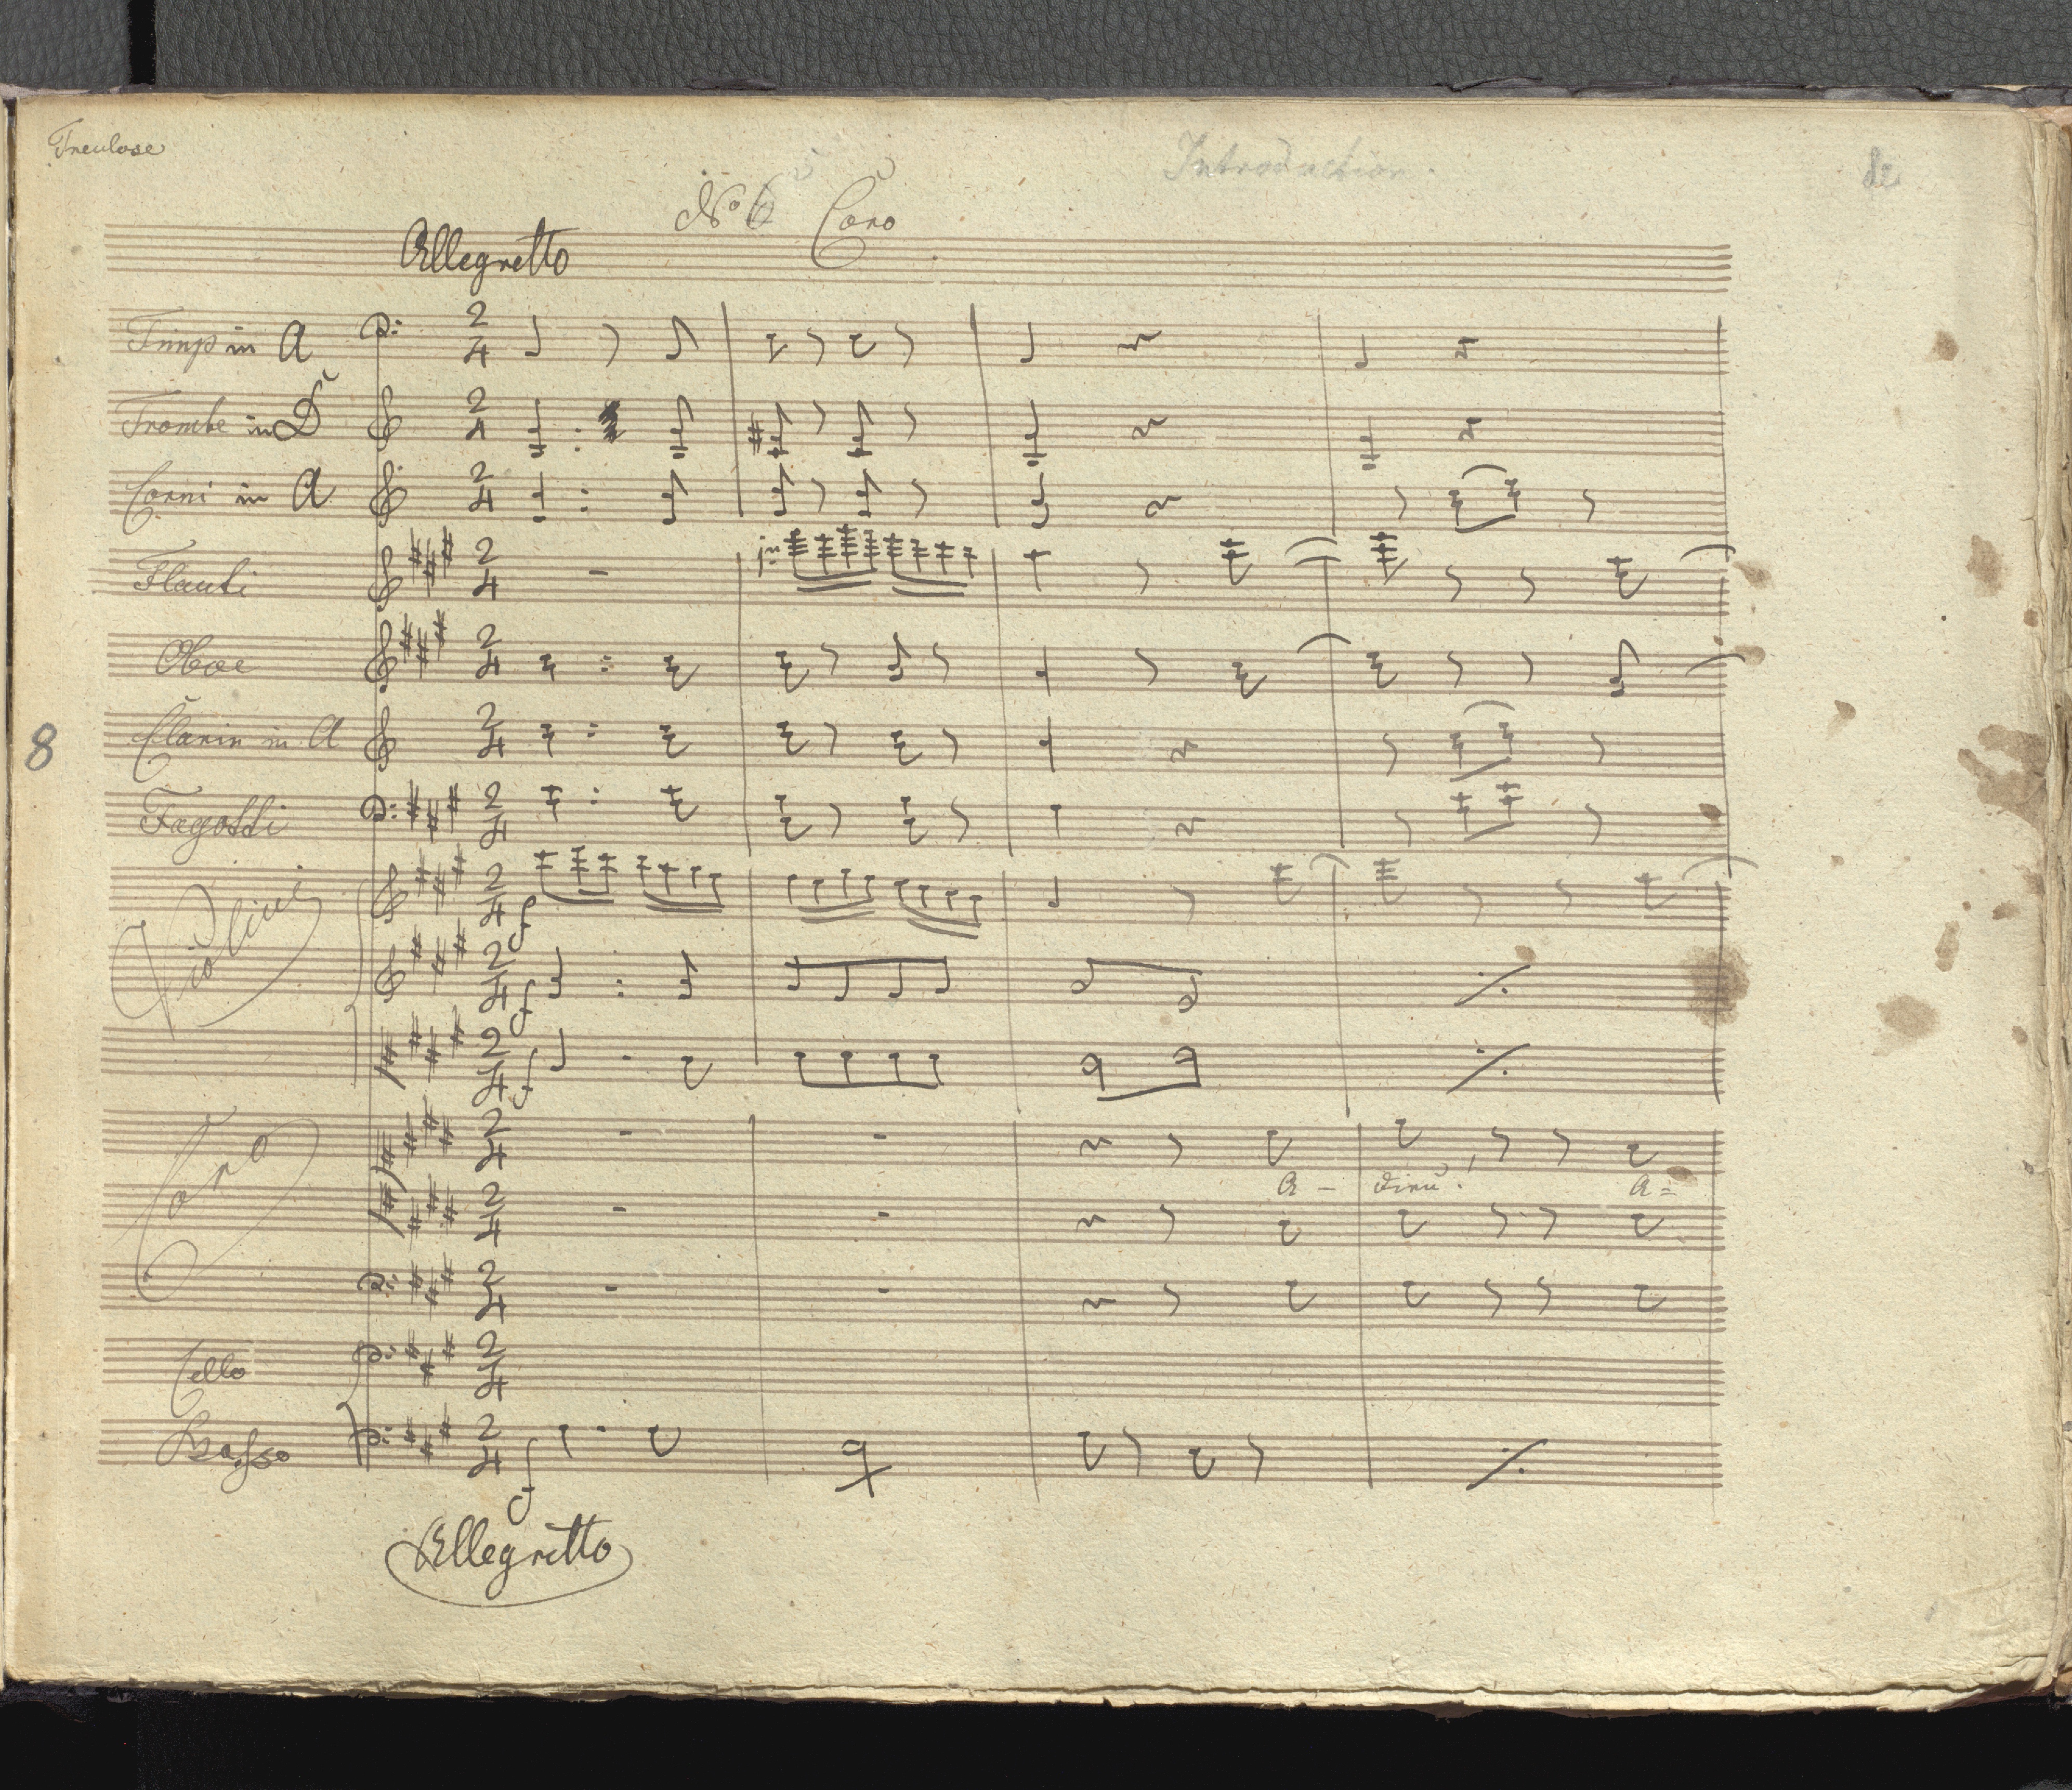 Treulose
Introduction.
No 6 Coro
Allegretto
Timp in A
Trombe in D
Corni in A
Flauti
Oboe
8
Clarin in A
Fagotti
Violini
f
f
f
Coro
A - dieu! A=
Cello
Basso
f
Allegretto